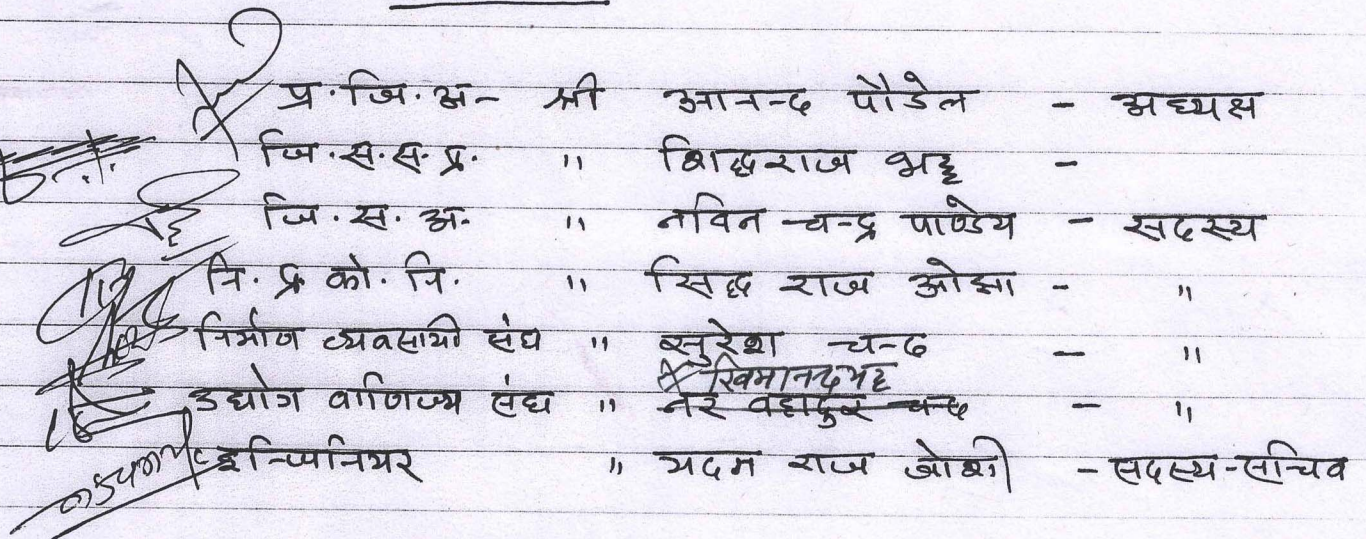 प्र. जि. अ- श्री आनन्द पौडेल - अध्यक्ष
जि. स. स. प्र. " सिद्धराज भट्ट -
जि. स. अ. " नविन चन्द्र पाण्डेय - सदस्य
नि. प्र. को. नि. " सिद्ध राज ओझा - "
निर्माण व्यवसायी संघ " सुरेश चन्द - "
खिमानन्द भट्ट
उद्योग वाणिज्य संघ " नर वहादुर चन्द - "
इन्जिनियर " पदम राज जोशी - सदस्य-सचिव